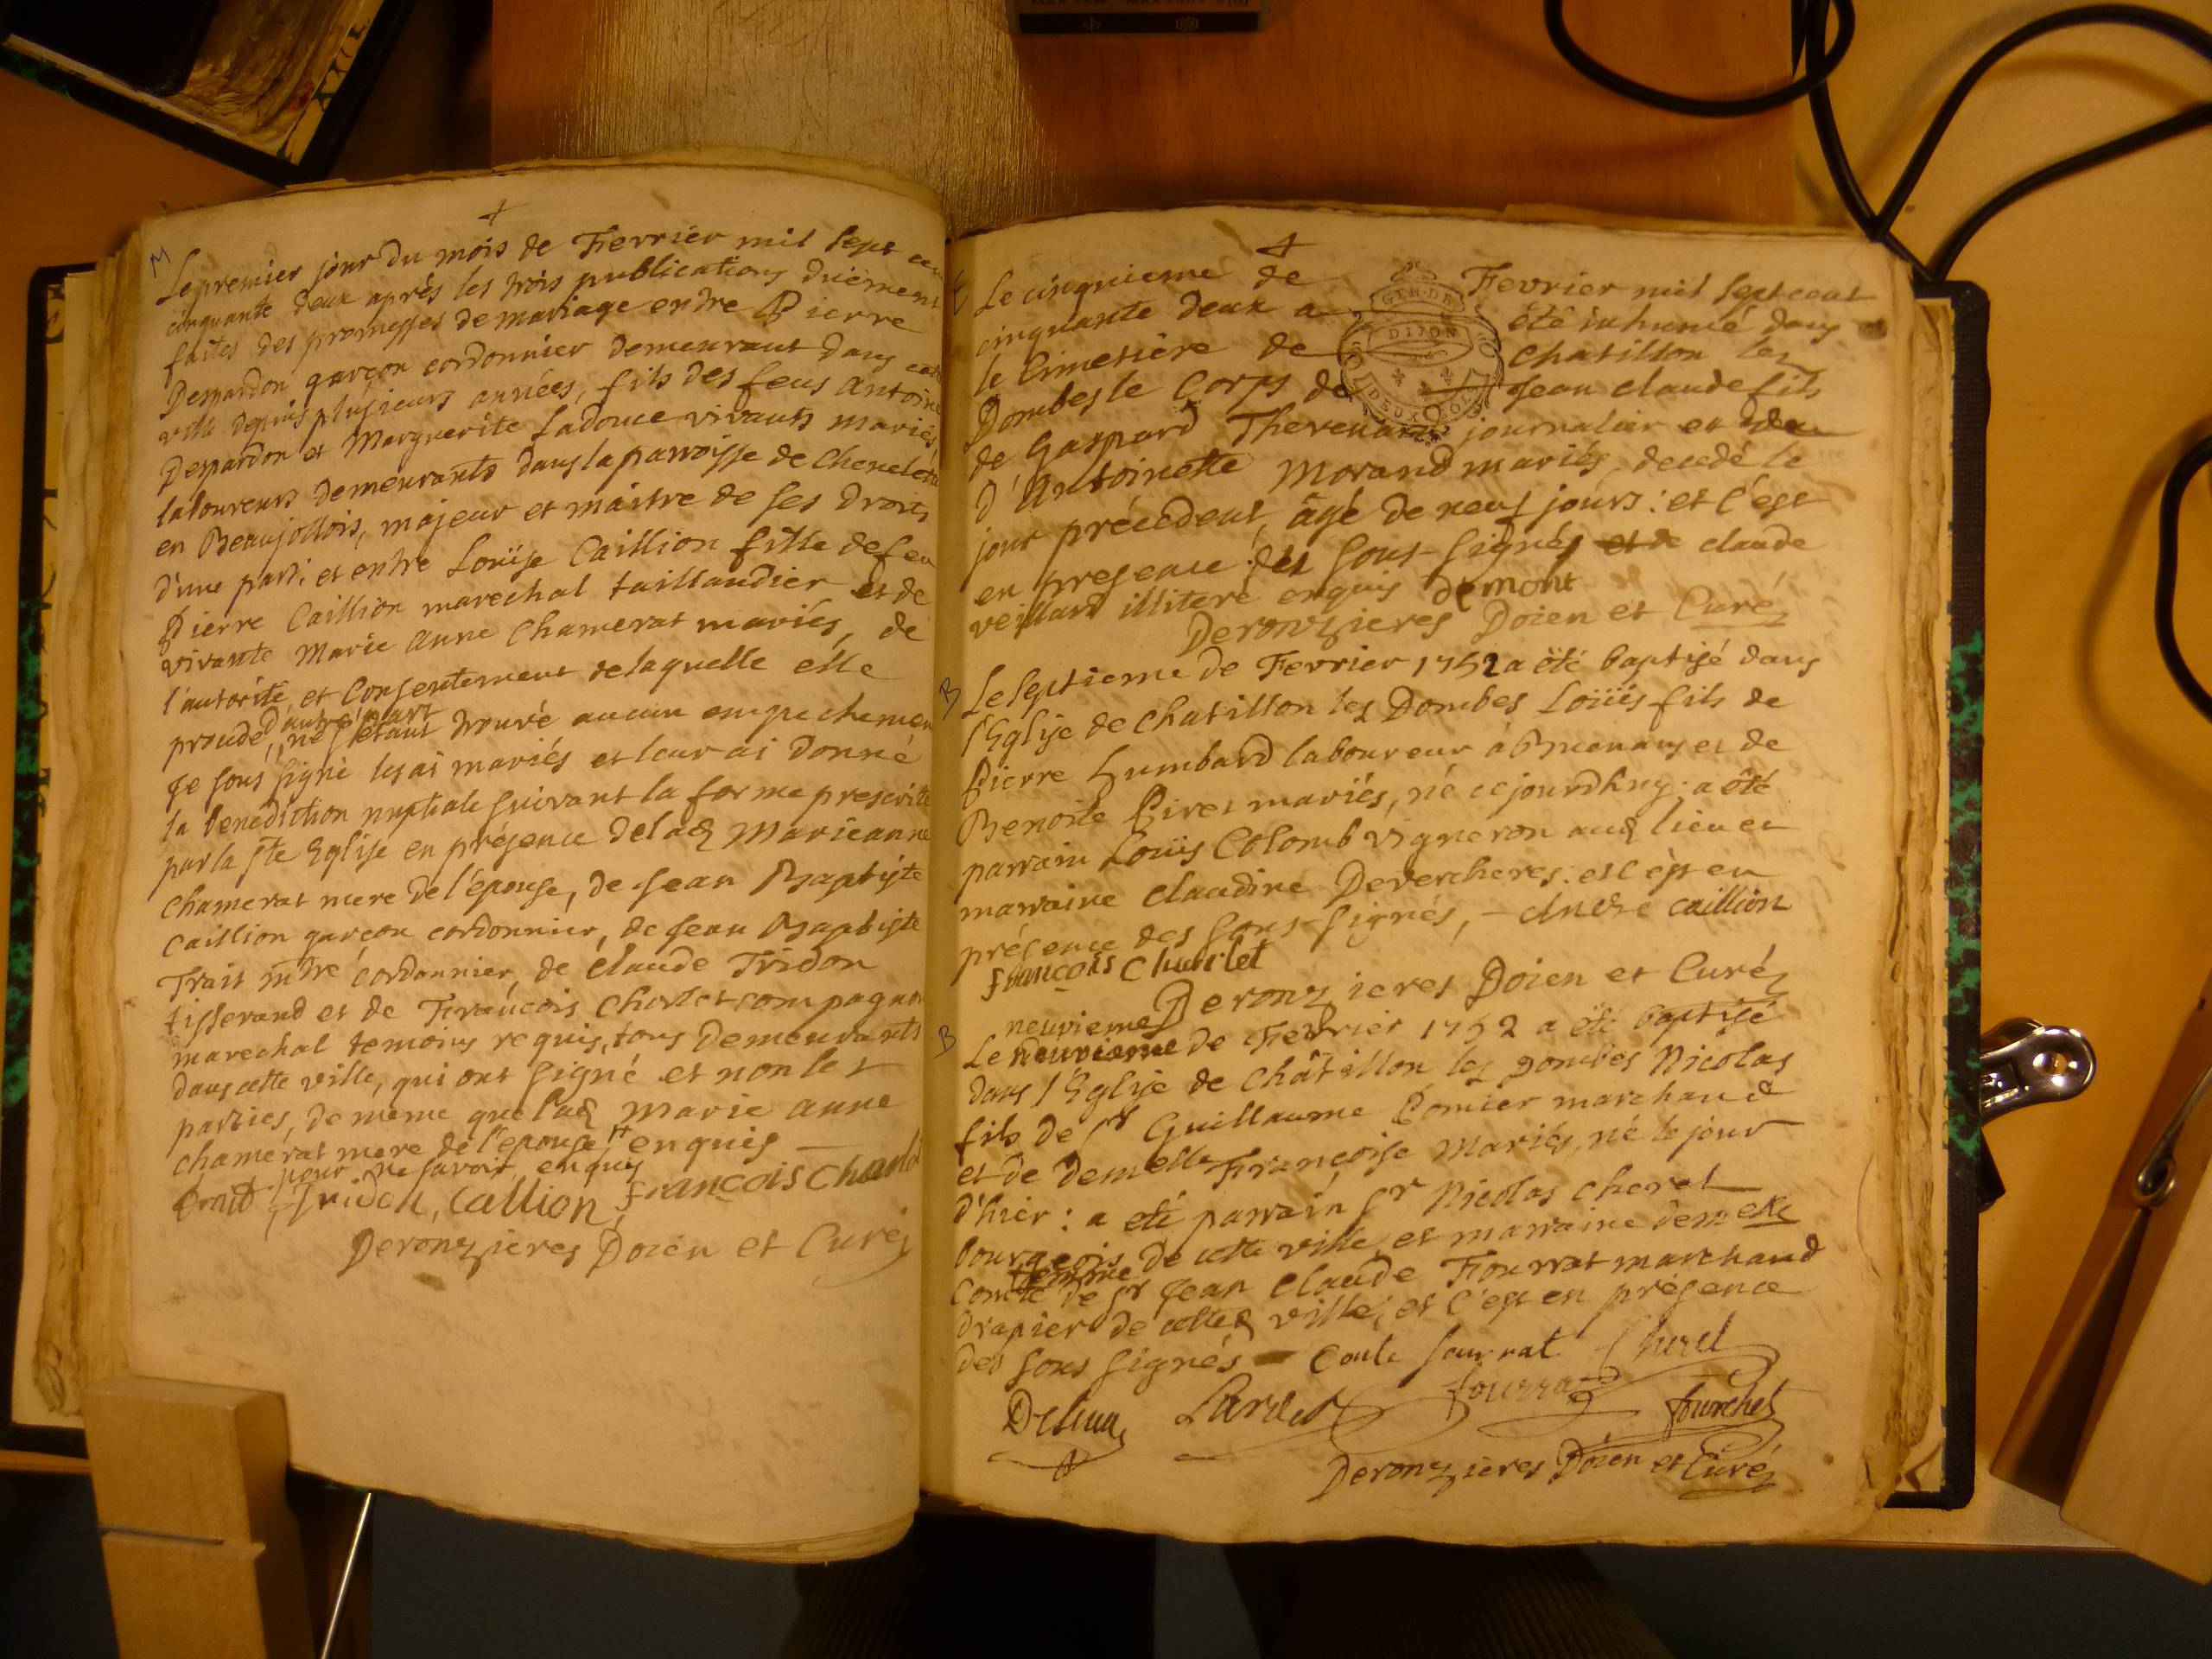 M
Le premier jour du mois de Fevrier mil sept cent
cinquante deux après les trois publications düement
faites des promesses de mariage entre Pierre
Despardon garçon cordonnier demeurant dans cette
ville depuis plusieurs années, fils des feus Antoine
Despardon et Marguerite Ladouce vivants mariés
laboureurs demeurants dans la parroisse de
en Beaujollois, majeur et maitre de ses droits
d'une part; et entre Loüise Caillion fille de feu
Pierre Caillion marechal taillandier et de
vivante Marie Anne Chamerat mariés, de
l'autorité et Consentement de laquelle elle
d'autre part
procede, ne s'etant trouvé aucun empechement
Je sous signé les ai mariés et leur ai donné
la benediction nuptiale suivant la forme prescrite
par la ste Eglise en présence de lad Marie anne
Chamerat mere de l'épouse, de Jean Baptiste
Caillion garçon cordonnier, de Jean Baptiste
Trait mtre cordonnier, de Claude Tridon
tisserand et de François Chorlet compagnon
marechal temoins requis, tous demeurants
dans cette ville, qui ont signé et non les
parties, de même que lad Marie anne
chamerat mere de l'epouse enquis
pour ne savoir enquis
Trait, Tridon, Callion, françois
Deronzieres Doien et Curé
E
Le cinquieme de Fevrier mil sept cent
cinquante deux a été inhumé dans
le Cimetière de Chatillon les
Dombes le Corps de Jean Claude fils
de Gaspard journalier et
d'Antoinette Morand mariés, decedé le
jour précedent, âgé de neuf jours: et c'est
en presence des sous-signés et de claude
veillard illiteré enquis demont
Deronzieres Doien et Curé
GEN. DE
DIJON
DEUX SOLS
B
Le septieme de Fevrier 1752 a été baptisé dans
l'Eglise de Chatillon les Dombes Loüis fils de
Pierre Humbard laboureur à Buenans et de
Benoite Piret mariés, né ce jourdhuy: a été
parrain Loüis Colomb vigneron aud lieu et
marraine Claudine Devercheres: et c'est en
présence des sous-signés, - Andre caillion
françois Chorlet
Deronzieres Doien et Curé
B
neuvieme
Le neuvieme de Fevrier 1752 a été baptisé
dans l'Eglise de Châtillon les Dombes Nicolas
fils de sr Guillaume Comier marchand
et de demelle Françoise Mariés, né le jour
d'hier: a eté parrain sr Nicolas Cheret
bourgeois de cette ville et marraine demelle
femme
Comte de sr Jean Claude Fourrat marchand
drapier de cetted ville, et c'est en présence
des sous signés - Conte fourrat
fourrat
Deronzieres Doien et Curé